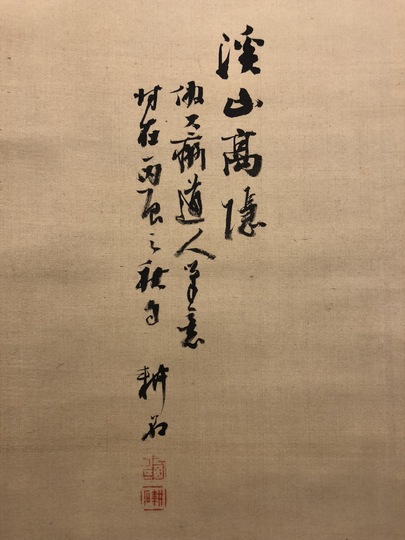 溪山高隱
倣大癡道人筆意
時在丙辰之秋日 耕石